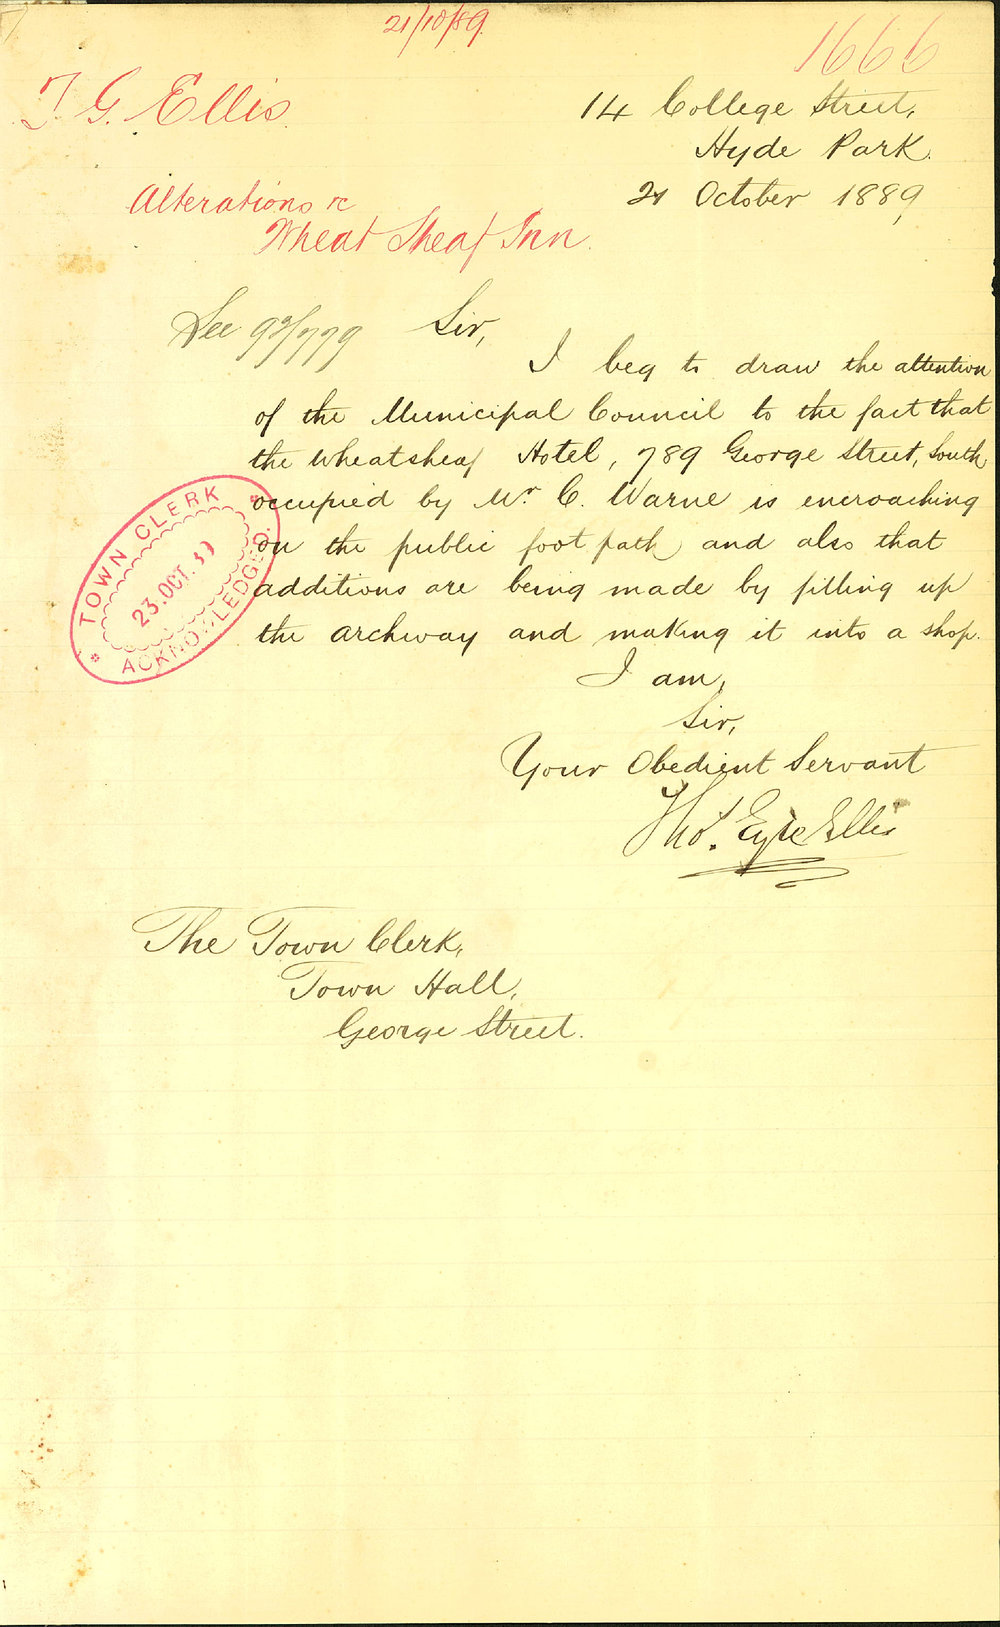 21/10/89.
1666
T. G. Ellis.
14 College Street,
Hyde Park.
21 October 1889
Alterations re
Wheat Sheaf Inn.
See 92/779
Sir,
I beg to draw the attention
of the Municipal Council to the fact that
the Wheatsheaf Hotel, 789 George Street, South
occupied by Mr. C. Warne is encroaching
on the public foot path and also that
additions are being made by filling up
the archway and making it into a shop.
TOWN CLERK
23.OCT.
ACKNOWLEDGED.
I am,
Sir,
Your Obedient Servant
Thos. Eyre Ellis
The Town Clerk,
Town Hall,
George Street.